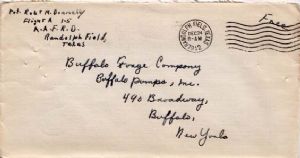 Pvt. Robt M. Donnelly
Flight A 1-5
A.A.F.R.D.
Randolph Field,
Texas
RANDOLPH FIELD, TEXAS
DEC 24
8-AM
Free
Buffalo Forge Company
Buffalo Pumps, Inc.
490 Broadway,
Buffalo,
New York